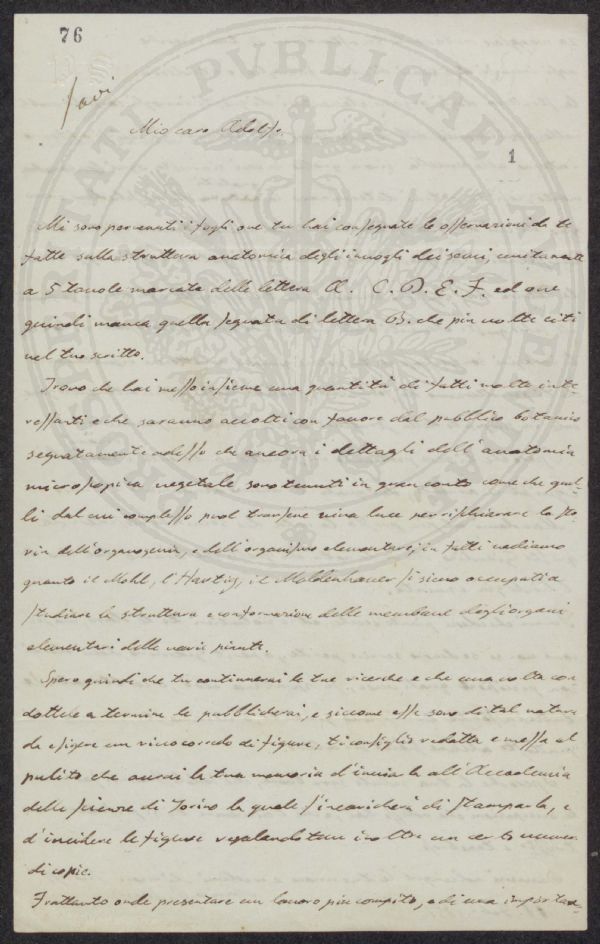 76
Savi
Mio caro Adolfo.
1
Mi sono pervenuti i fogli ove tu hai consegnate le osservazioni da te
fatte sulla struttura anatomica degli invogli dei semi, unitamente
a 5 tavole marcate delle lettera A. C. D. E. F. ed ove
quindi manca quella segnata di lettera B. che più volte citi
nel tuo scritto.
Trovo che hai messo insieme una quantità di fatti molto inte-
ressanti e che saranno accolti con favore dal pubblico botanico
segnatamente adesso che ancora i dettagli dell'anatomia
microscopica vegetale sono tenuti in gran conto come che quel-
li dal cui complesso può trarsene viva luce per rischiarare la sto
ria dell'organogenia, e dell'organismo elementare; in fatti vediamo
quanto il Mohl, l'Hartig, il Moldenhauer si sieno occupati a
studiare la struttura e conformazione delle membrane degli organi
elementari delle varie piante.
Spero quindi che tu continuerai le tue ricerche e che una volta con
dottele a termine le pubblicherai, e siccome esse sono di tal natura
da esigere un ricco corredo di figure, ti consiglio redatta e messa al
pulito che avrai la tua memoria d'inviarla all'Accademia
delle scienze di Torino la quale s'incaricherà di stamparla, e
d'incidere le figure regalandotene inoltre un certo numero
di copie.
Frattanto onde presentare un lavoro più compito, e di una importan-